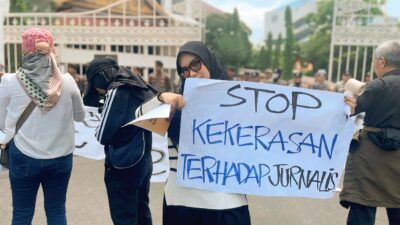 STOP
KEKERASAN
TERHADAP JURNALIS